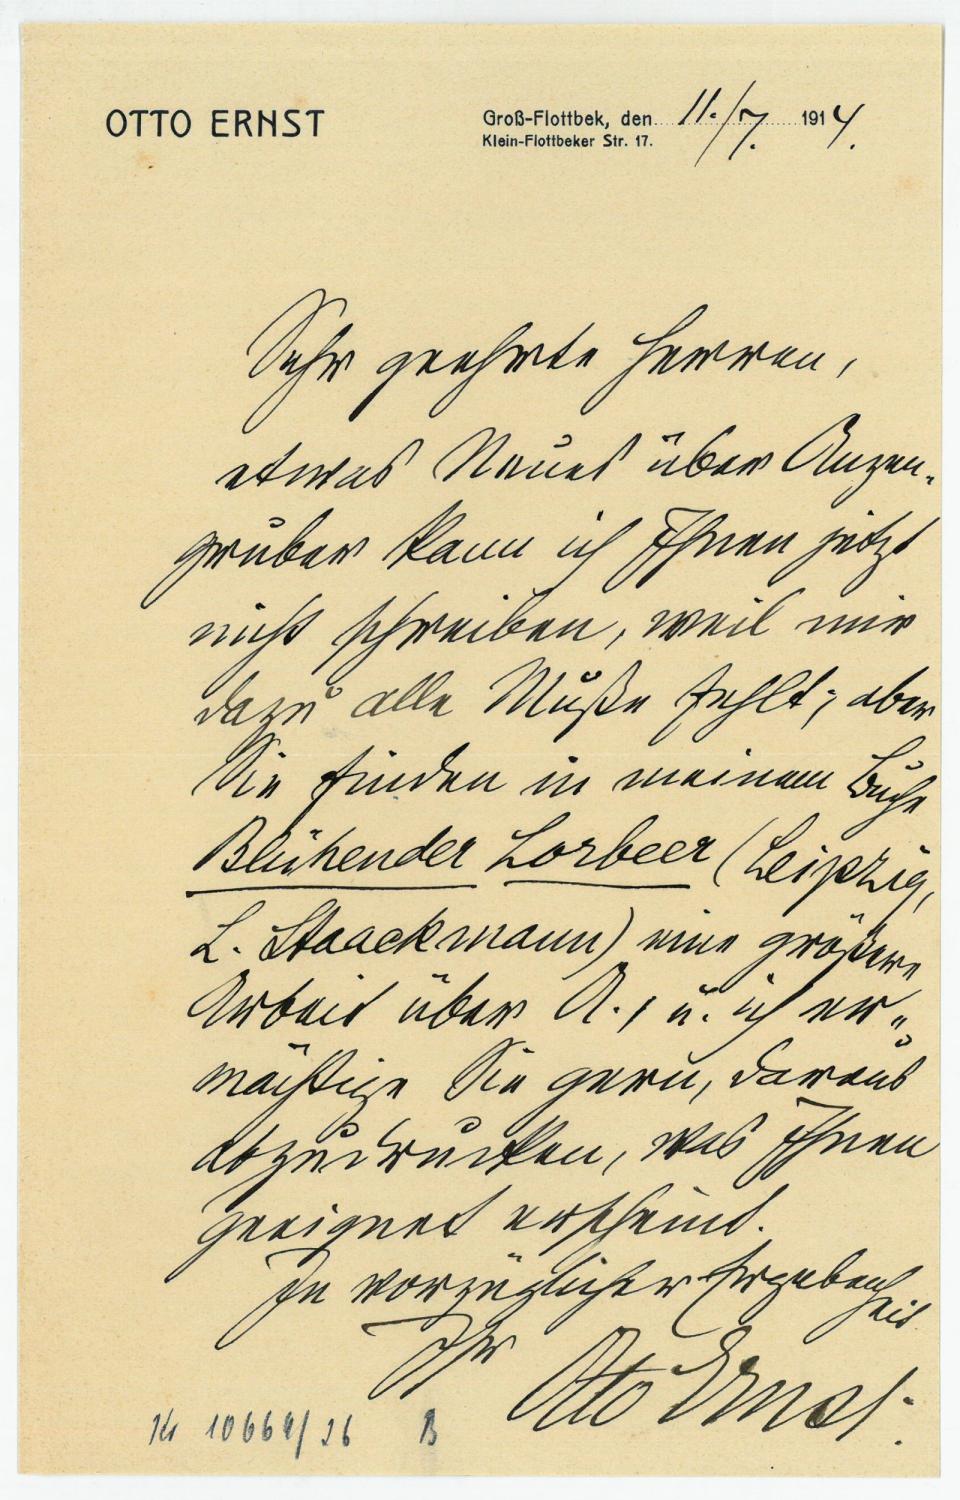 OTTO ERNST
Groß-Flottbek, den 11./7. 1914.
Klein-Flottbeker Str. 17.
Sehr geehrte Herren,
etwas Neues über Anzen-
gruber kann ich Ihnen jetzt
nicht schreiben, weil mir
dazu alle Muße fehlt; aber
Sie finden in meinem Buche
Blühender Lorbeer (Leipzig,
L. Staackmann) eine größere
Arbeit über A., u. ich er-
mächtige Sie gern, daraus
abzudrucken, was Ihnen
geeignet erscheint.
In vorzüglicher Ergebenheit
Ihr Otto Ernst.
10664/36 B